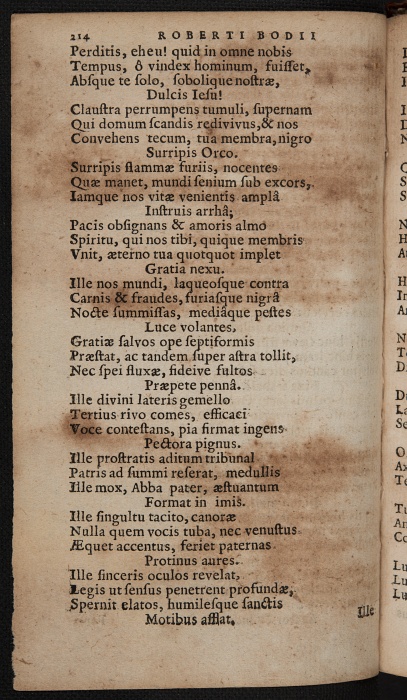 214 ROBERTI BODII
Perditis, eheu! quid in omne nobis
Tempus, ô vindex hominum, fuiſſet,
Abſque te ſolo, ſobolique noſtræ,
Dulcis Ieſu!
Clauſtra perrumpens tumuli, ſupernam
Qui domum ſcandis redivivus, & nos
Convehens tecum, tua membra, nigro
Surripis Orco.
Surripis flammæ furiis, nocentes
Quæ manet, mundi ſenium ſub excors,
Iamque nos vitæ venientis amplâ
Inſtruis arrhâ;
Pacis obſignans & amoris almo
Spiritu, qui nos tibi, quique membris
Vnit, æterno tua quotquot implet
Gratia nexu.
Ille nos mundi, laqueoſque contra
Carnis & fraudes, furiaſque nigrâ
Nocte ſummiſſas, mediâque peſtes
Luce volantes,
Gratiæ ſalvos ope ſeptiformis
Præſtat, ac tandem ſuper aſtra tollit,
Nec ſpei fluxæ, fideive fultos
Præpete pennâ.
Ille divini lateris gemello
Tertius rivo comes, efficaci
Voce conteſtans, pia firmat ingens
Pectora pignus.
Ille proſtratis aditum tribunal
Patris ad ſummi reſerat, medullis
Ille mox, Abba pater, æſtuantum
Format in imis.
Ille ſingultu tacito, canoræ
Nulla quem vocis tuba, nec venuſtus
Æquet accentus, feriet paternas
Protinus aures.
Ille ſinceris oculos revelat,
Legis ut ſenſus penetrent profundæ,
Spernit elatos, humileſque ſanctis
Motibus afflat.
Ille